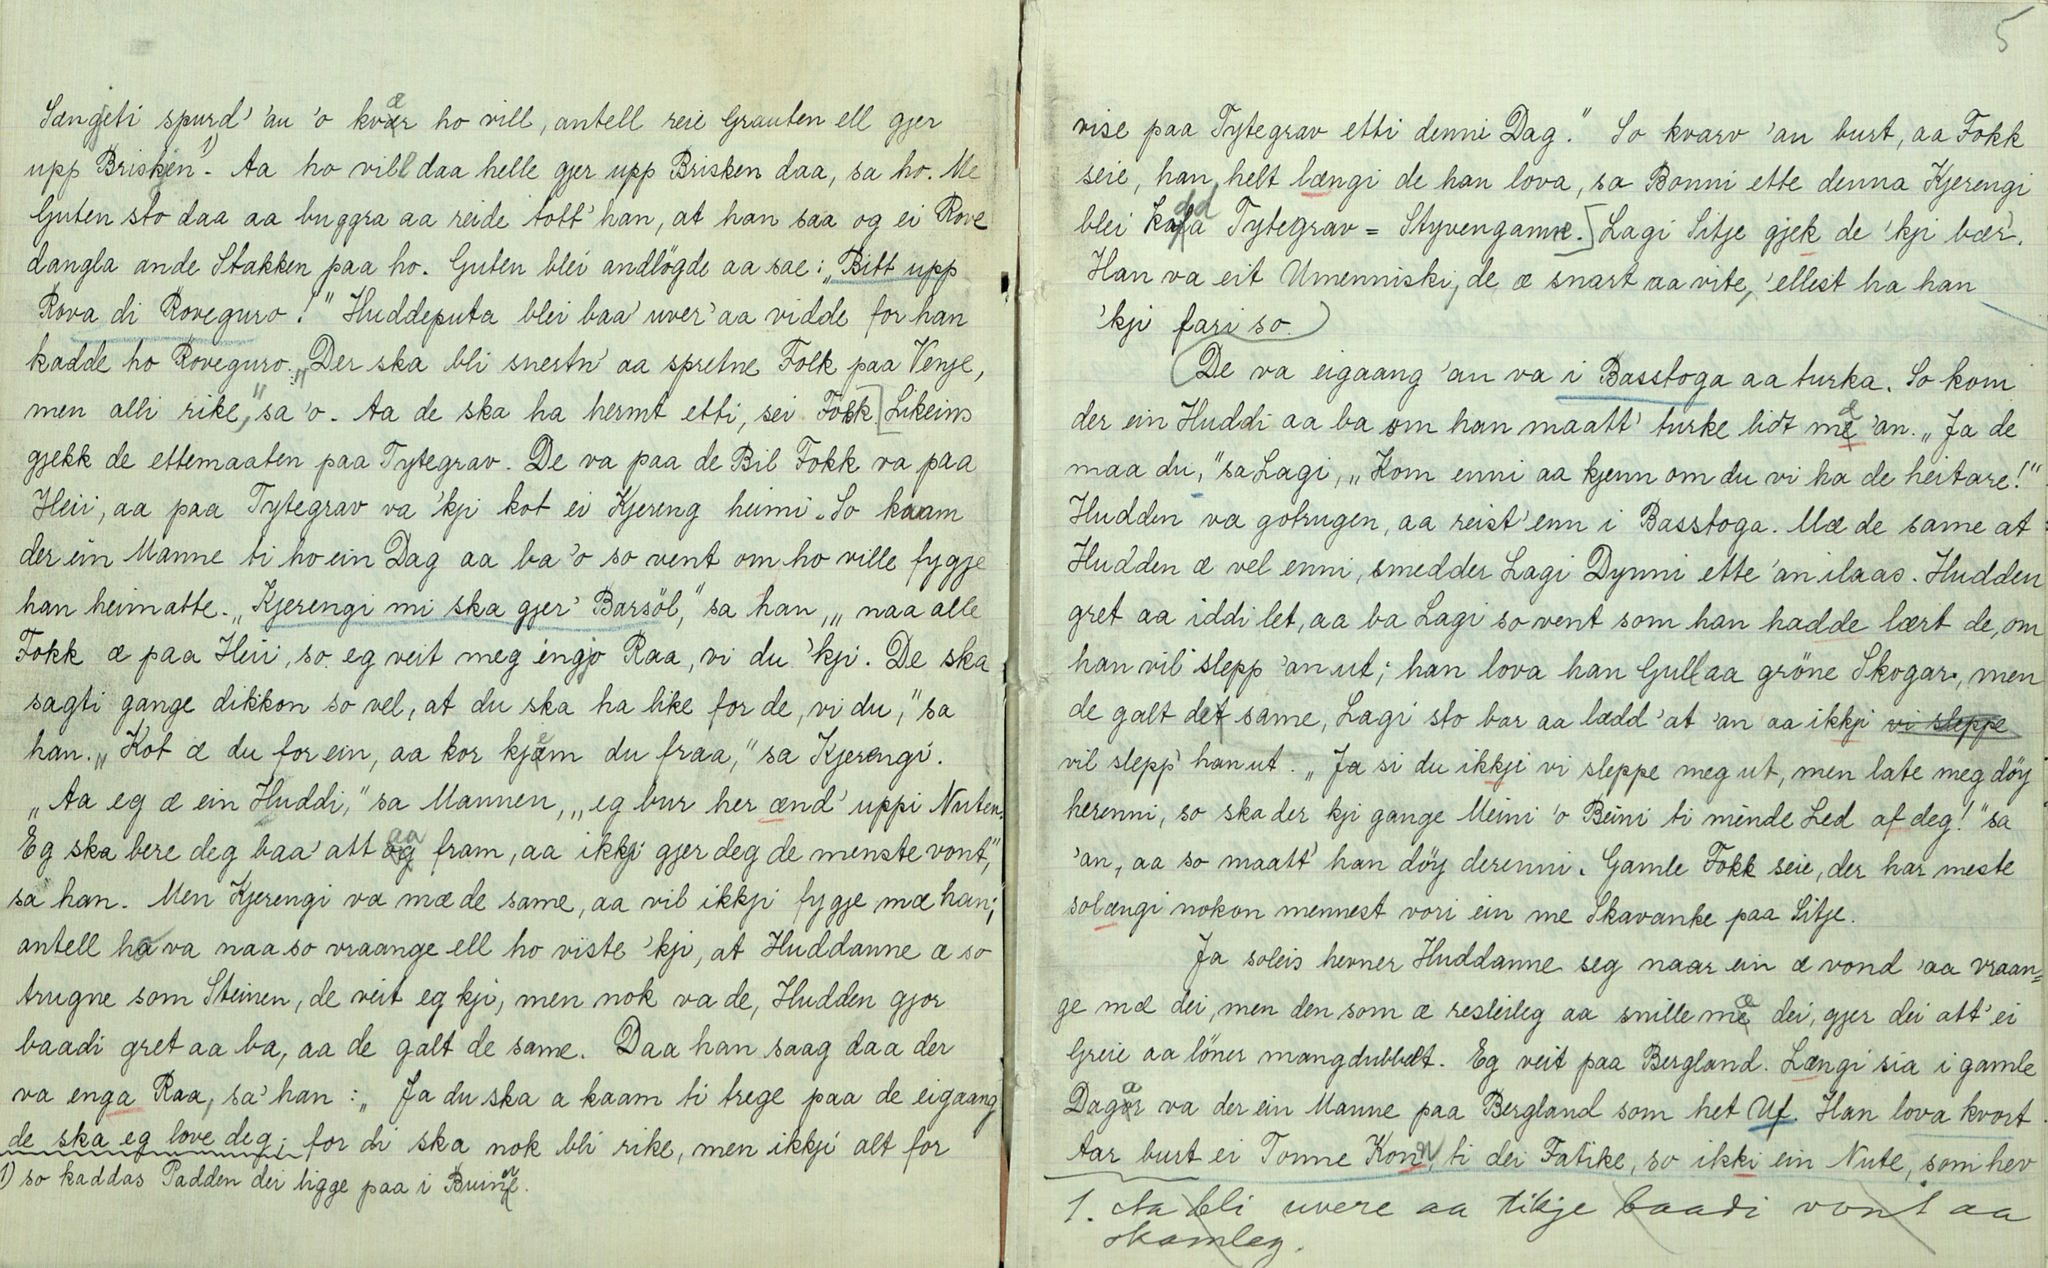 Sængjeti spurd' 'au 'o kvær ho vill, antell reie Grauten ell gjer
upp Brisken 1). Aa ho vill daa helle gjer upp Brisken daa, sa ho. Me
Guten sto daa aa buggra aa reide tott' han, at han saa og ei Rove
dangla ande Stakken paa ho. Guten blei andlögde aa sae: „Bitt upp
Rova di Roveguro!" Huddeputa blei baa' uver' aa vidde for han
kadde ho Roveguro. „Der ska bli snertn' aa spretne Folk paa Venje,
men alli rike," sa 'o. Aa de ska ha hermt etti, sei Fokk. [Likeins
gjekk de ettemaaten paa Tytegrav. De va paa de Bil Fokk va paa
Heii, aa paa Tytegrav va 'kji kot ei Kjereng heimi. So kaam
der ein Manne ti ho ein Dag aa ba 'o so vent om ho ville fygje
han heimatte. „Kjerengi mi ska gjer' Barsöl," sa han, „naa alle
Fokk æ paa Heii, so eg veit meg engjo Raa, vi du 'kji. De ska
sagti gange dikkon so vel, at du ska ha like for de, vi du," sa
han. „Kot æ du for ein, aa kor kjæm du fraa," sa Kjerengi.
„Aa eg æ ein Huddi," sa Mannen, „eg bur her ænd' uppi Nuten.
Eg ska bere deg baa' att aa fram, aa ikkji gjer deg de menste vont",
sa han. Men Kjerengi va mæ de same, aa vil ikkji fygje mæ han;
antell ho va naa so vraange ell ho viste 'kji, at Huddanne æ so
trugne som Steinen, de veit eg kji, men nok va de, Hudden gjor
baadi gret aa ba, aa de galt de same. Daa han saag daa der
va enga Raa, sa' han: „Ja du ska a kaam ti trege paa de eigaang
de ska eg love deg; for di ska nok bli rike, men ikkji alt for
1) so kaddas Padden dei ligge paa i Buine.
5
vise paa Tytegrav etti denni Dag." So kvarv 'an burt, aa Fokk
seie, han helt længi de han lova, sa Bonni ette denna Kjerengi
blei kadda Tytegrav = Styvengane.] Lagi Sitje gjek de 'kji bær'.
Han va eit Umenniski, de æ snart aa vite, 'ellest ha han
'kji fari so.)
(De va eigaang 'an va i Basstoga aa turka. So kom
der ein Huddi aa ba om han maatt' turke lidt mæ 'an. „Ja de
maa du," sa Lagi, „Kom enni aa kjenn om du vi ha de heitare!"
Hudden va gotrugen, aa reist' enn i Basstoga. Mæ de same at
Hudden æ vel enni, smedder Lagi Dynni ette 'an ilaas. Hudden
gret aa iddi let, aa ba Lagi so vent som han hadde lært de, om
han vil slepp 'an ut; han lova han Gull aa gröne Skogar, men
de galt det same, Lagi sto bar aa lædd 'at 'an aa ikkji vi sleppe
vil slepp' han ut. „Ja si du ikkji vi sleppe meg ut, men late meg döy
herenni, so ska der kji gange Meini 'o Beini ti minde Led af deg!" sa
'an, aa so maatt' han döy derenni. Gamle Fokk seie, der har meste
solængi nokon mennest vori ein me Skavanke paa Sitje.
Ja soleis hevner Huddanne seg naar ein æ vond 'aa vraan=
ge mæ dei, men den som æ resleileg aa snille mæ dei, gjer dei att' ei
Greie aa löner mangdubbelt. Eg veit paa Bergland. Længi sia i gamle
Dagær va der ein Manne paa Bergland som het Uf. Han lova kvort
Aar burt ei Tonne Konn ti dei Fatike, so ikki ein Nute, som hev
1. Aa bli uvere aa tikje baadi vont aa
skamleg.